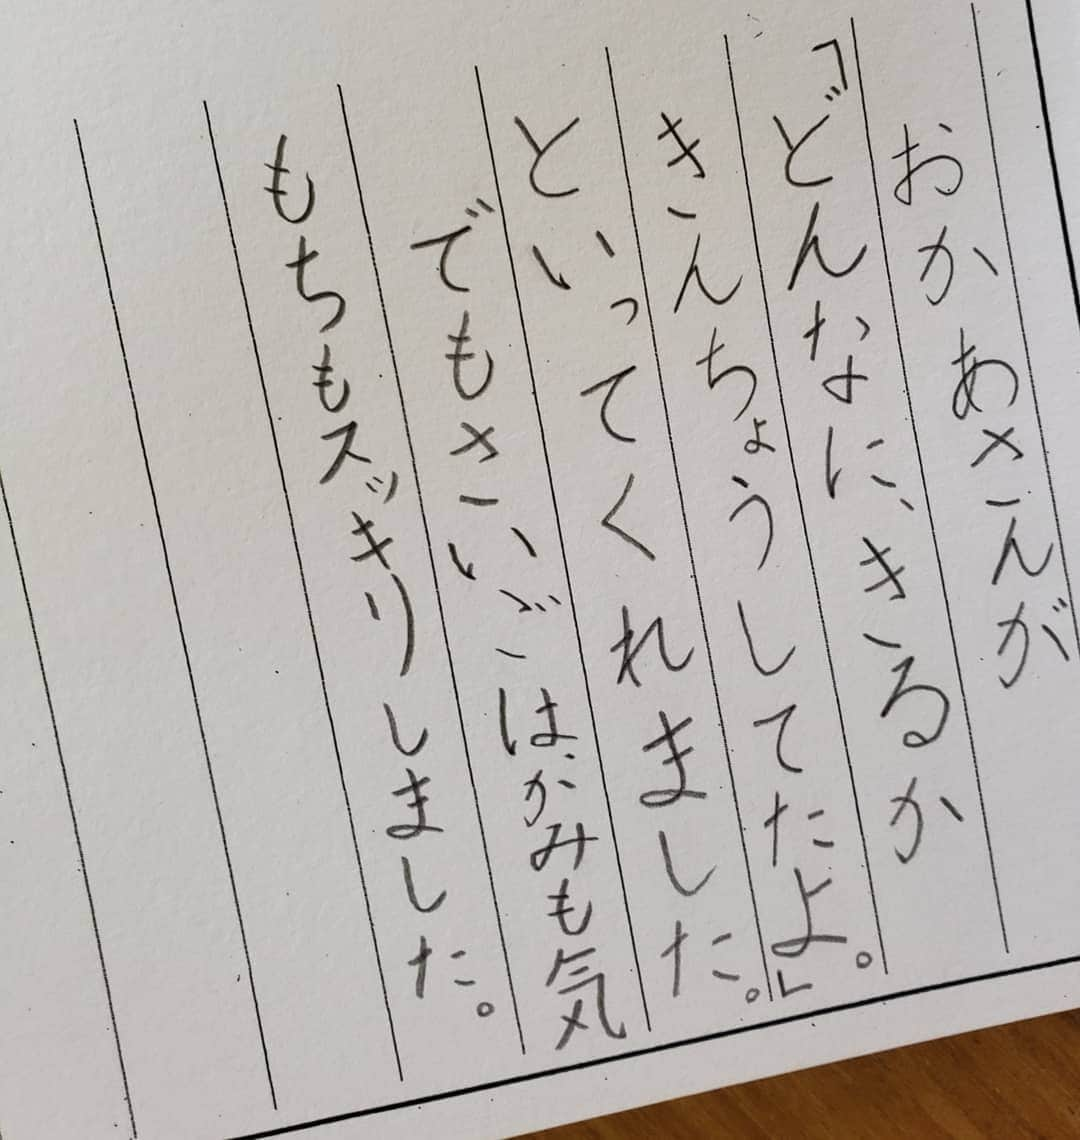 おかあさんが
「どんなに、きるか
きんちょうしてたよ。」
といってくれました。
でもさいごは、かみも気
もちもスッキリしました。